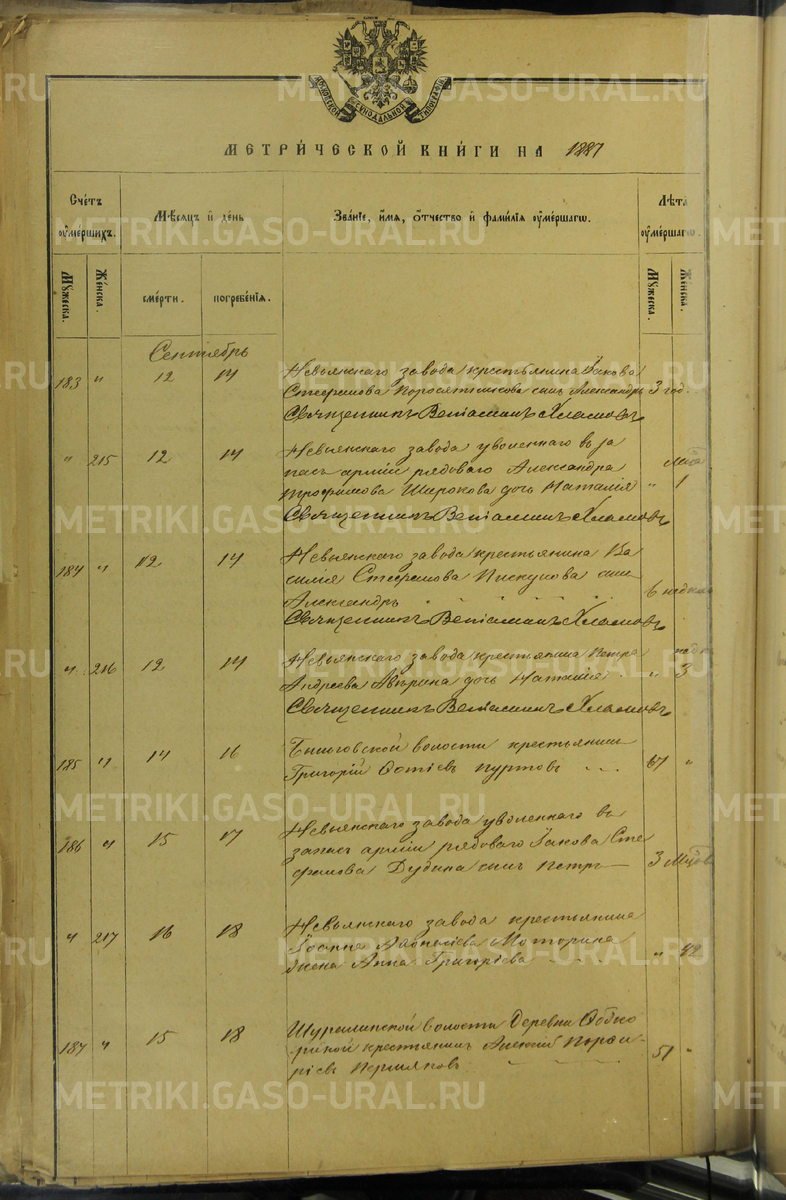 МЕТРИ́ЧЕСКОЙ КНИ́ГИ НА 1887
Сче́тъ ᲂумершихъ.
Мѣсяцъ и день
Зва́нїе, и́мя, о́тчество и фами́лїя ᲂуме́ршагѡ.
Лѣта ᲂуме́ршагѡ.
Мꙋжеска.
Женска.
сме́рти.
погребе́нїя.
Мꙋжеска.
Женска.
Сентябрь
183 " 12 14 Невьянскаго завода крестьянина Iакова
Стефанова сынъ Александръ 3 год.
Священникъ Венiаминъ Хламовъ
" 215 12 14 Невьянскаго завода уволеннаго въ за
пасъ армiи рядоваго Александра
Трофимова Широкова дочь Наталiя " 1
Священникъ Венiаминъ Хламовъ
184 " 12 14 Невьянскаго завода крестьянина Ва
силiя Стефанова Пискунова сынъ
Александръ 6
Священникъ Венiаминъ Хламовъ
" 216 12 14 Невьянскаго завода крестьянина Петра
Андреева Аверина дочь Наталiя " 3
Священникъ Венiаминъ Хламовъ
185 " 14 16 волости крестьянинъ
Григорiй Куртовъ 67 "
186 " 15 17 Невьянскаго завода уволеннаго въ
запасъ армiи рядоваго Iакова Сте
фанова Дудина сынъ Петръ 3
" 217 16 18 Невьянскаго завода крестьянина
Iоанна Моторина
жена Анна Григорiева " 42
187 " 15 18 Шуралинской волости Деревни
крестьянинъ Алексiй Порфи
рiевъ Пермяковъ 51 "
METRIKI.GASO-URAL.RU